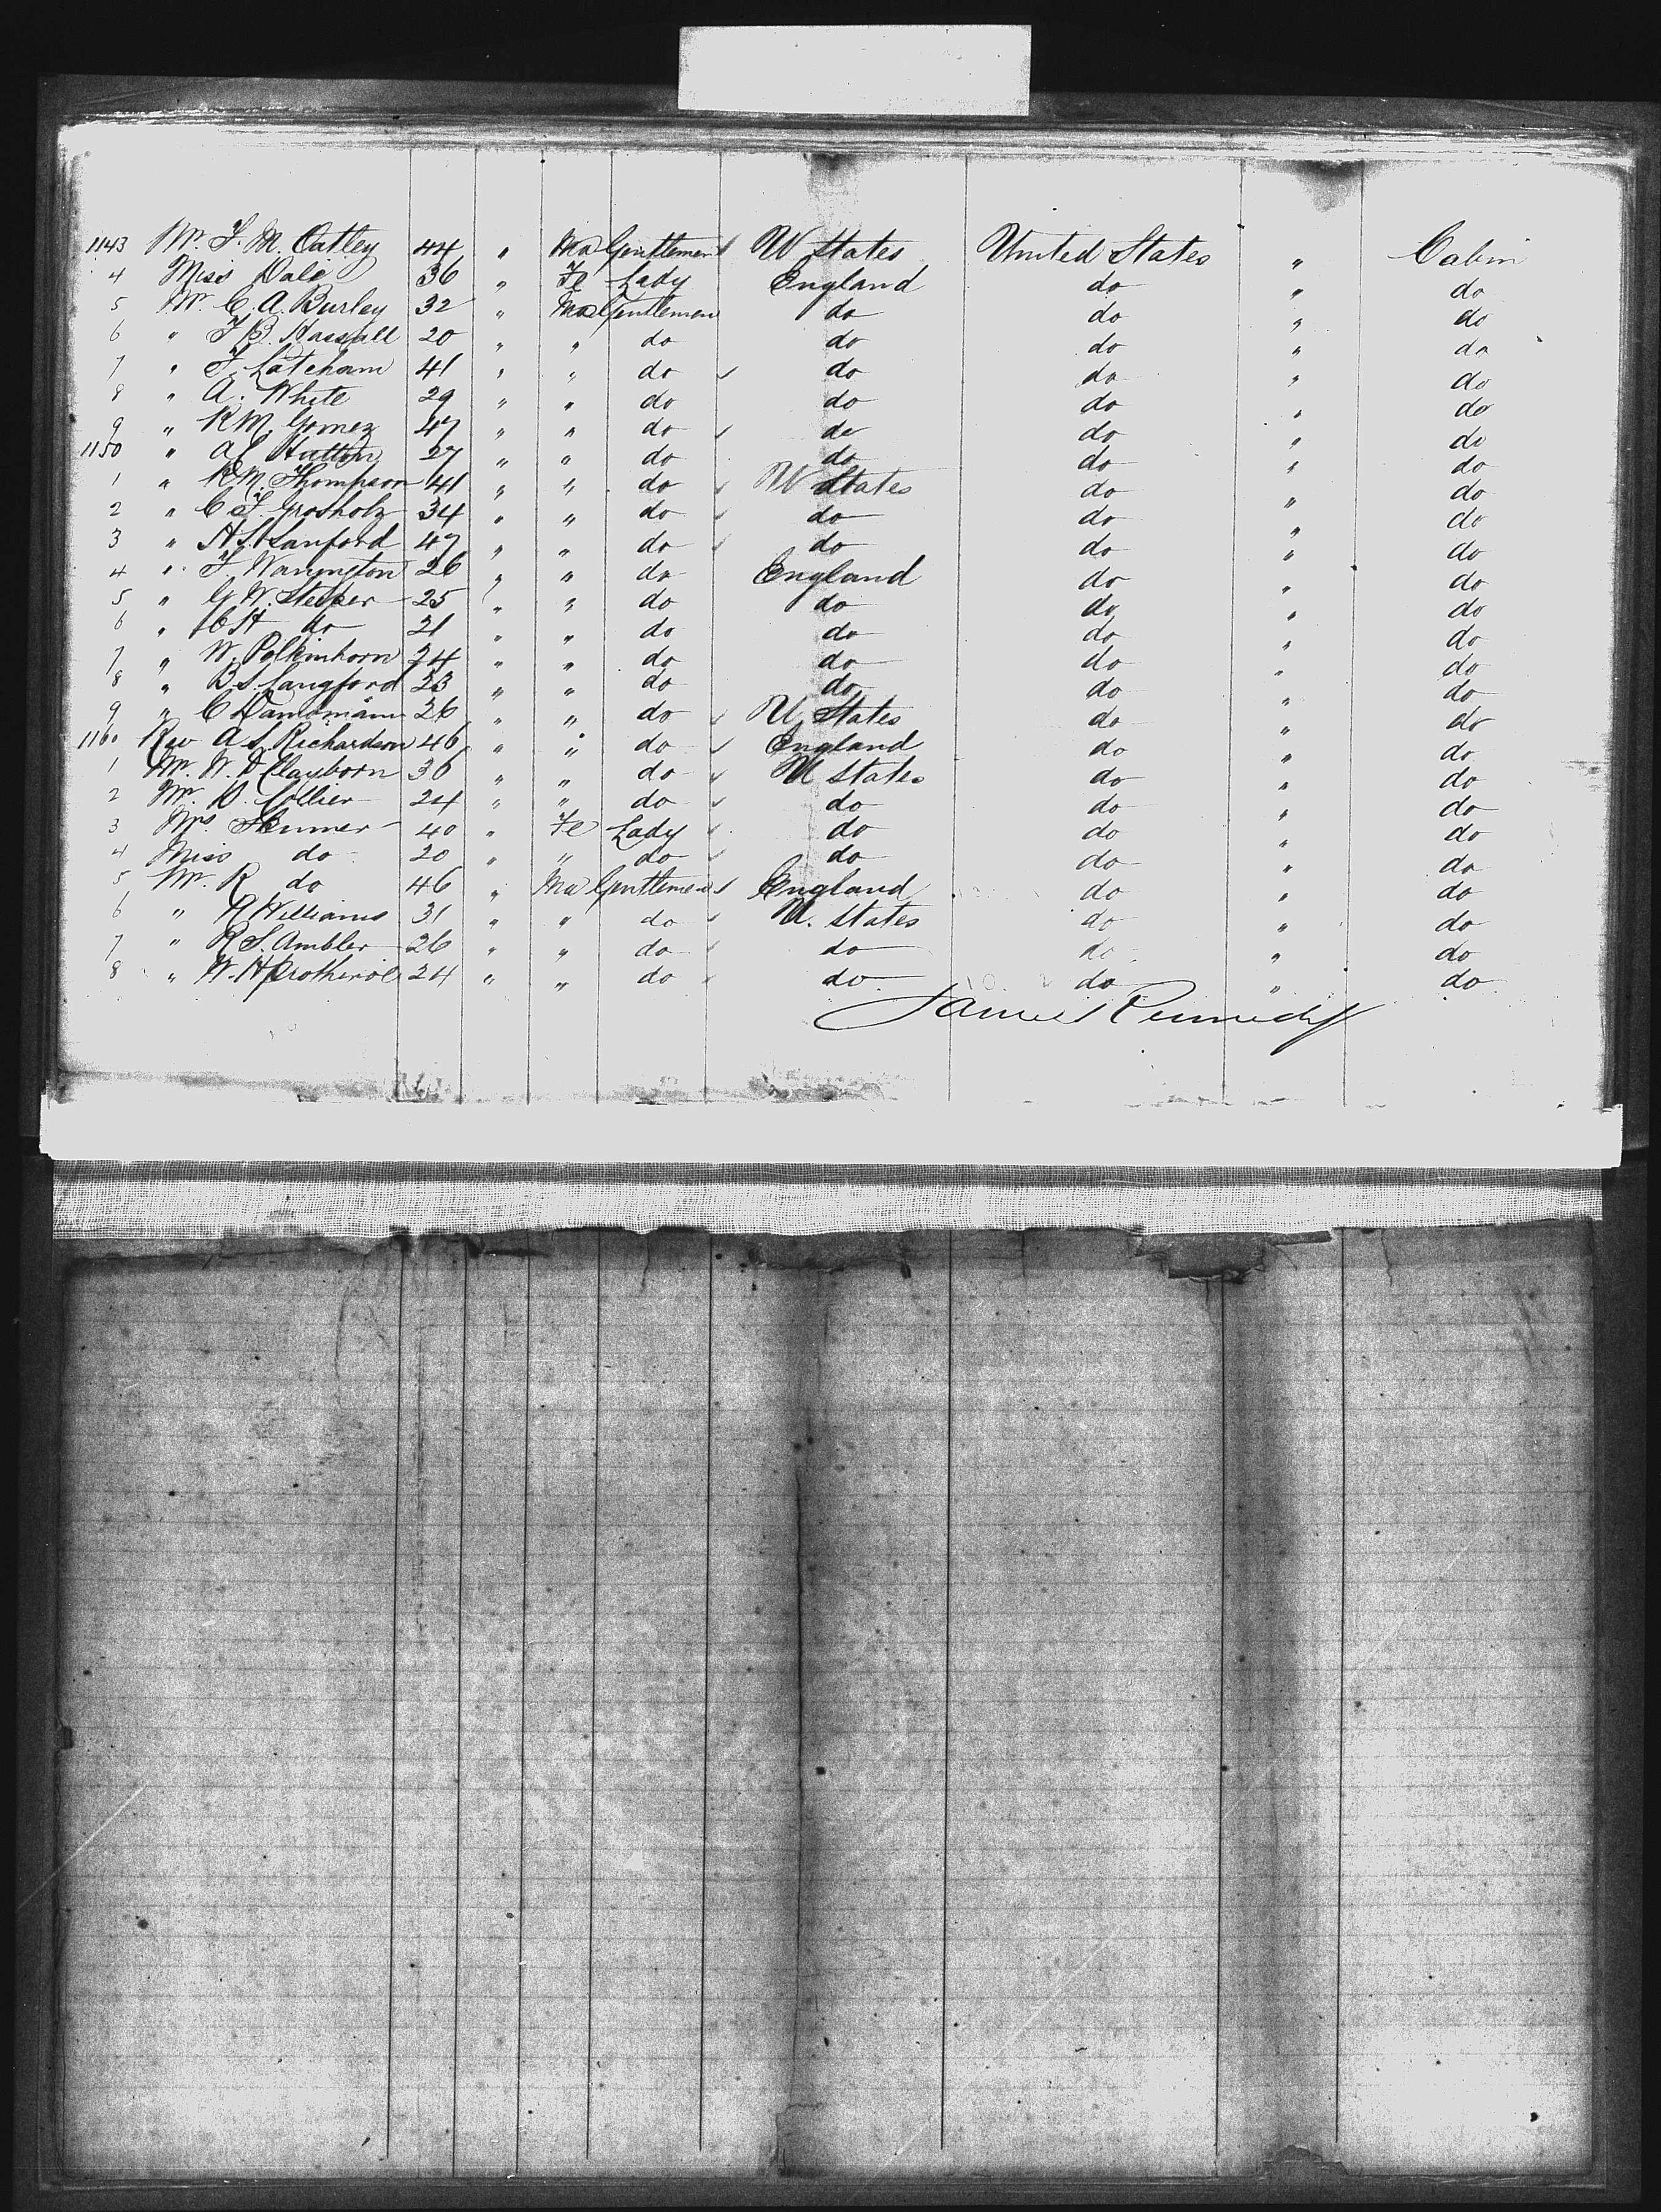 1143 Mr. F. M. Oatley 44 " Ma Gentlemen U States United States " Cabin
4 Miss Dale 36 " Fe Lady England do " do
5 Mr. C. A. Burley 32 " Ma Gentlemen do do " do
6 " F B. Hassall 20 " " do do do " do
7 " F. Latcham 41 " " do do do " do
8 " A. White 29 " " do do do " do
9 " R M. Gomez 47 " " do do do " do
1150 " A C Hutton 27 " " do do do " do
1 " R M. Thompson 41 " " do U States do " do
2 " C F. Grosholz 34 " " do do do " do
3 " H S. Sanford 47 " " do do do " do
4 " F Warrington 26 " " do England do " do
5 " G W. 25 " " do do do " do
6 " C H do 21 " " do do do " do
7 " W. Polkinhorn 24 " " do do do " do
8 " B S. Langford 23 " " do do do " do
9 " C 26 " " do U States do " do
1160 Rev A S. Richardson 46 " " do England do " do
1 Mr. W. D Clayborn 36 " " do U States do " do
2 Mr. D. Collier 24 " " do do do " do
3 Mrs. Skinner 40 " Fe Lady do do " do
4 Miss do 20 " " do do do " do
5 Mr. R do 46 " Ma Gentlemen England do " do
6 " R Williams 31 " " do U. States do " do
7 " R S. Ambler 26 " " do do do " do
8 " W. H 24 " " do do do " do
James Kennedy